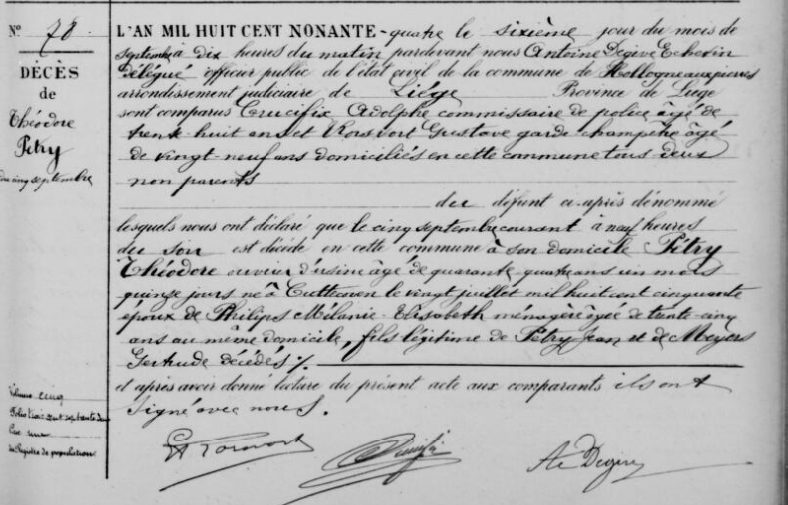 N° 78.
DÉCÈS
de
Théodore
Pétry
du cinq septembre
L'AN MIL HUIT CENT NONANTE-quatre le sixième jour du mois de
septembre à dix heures du matin pardevant nous Antoine Degive Echevin
délégué officier public de l'état civil de la commune de Hollogneauxpierres
arrondissement judiciaire de Liége Province de Liége
sont comparus Crucifix Adolphe commissaire de police âgé de
trente-huit ans et Gustave garde champêtre âgé
de vingt-neuf ans domiciliés en cette commune tous deux
non parents
du défunt ci-après dénommé
lesquels nous ont déclaré que le cinq septembre courant à neuf heures
du soir est décédé en cette commune à son domicile Pétry
Théodore ouvrier d'usine âgé de quarante quatre ans un mois
quinze jours né à le vingt juillet mil huit cent cinquante
époux de Philips Mélanie-Elisabeth ménagère âgée de trente-cinq
ans au même domicile, fils légitime de Pétry Jean et de Meyers
Gertrude décédés ./.
et après avoir donné lecture du présent acte aux comparants ils ont
signé avec nous.
Volume cinq
Folio cent septante deux
Case une
du Registre de population
Crucifix
A. Degive